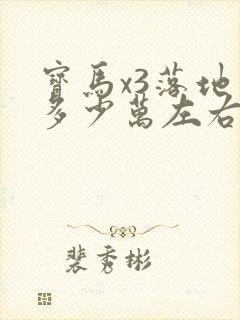 寶馬x3落地
多少萬左右
裴秀彬